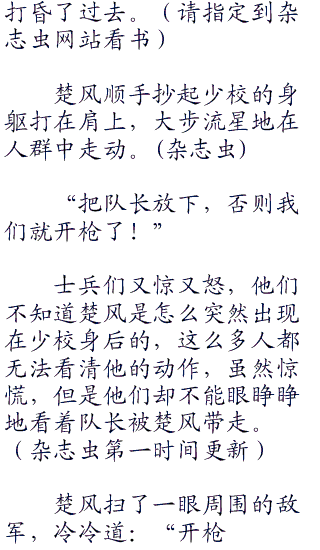 打昏了过去。（请指定到杂
志虫网站看书）
楚风顺手抄起少校的身
躯打在肩上，大步流星地在
人群中走动。(杂志虫)
“把队长放下，否则我
们就开枪了！”
士兵们又惊又怒，他们
不知道楚风是怎么突然出现
在少校身后的，这么多人都
无法看清他的动作，虽然惊
慌，但是他们却不能眼睁睁
地看着队长被楚风带走。
（杂志虫第一时间更新）
楚风扫了一眼周围的敌
军，冷冷道：“开枪